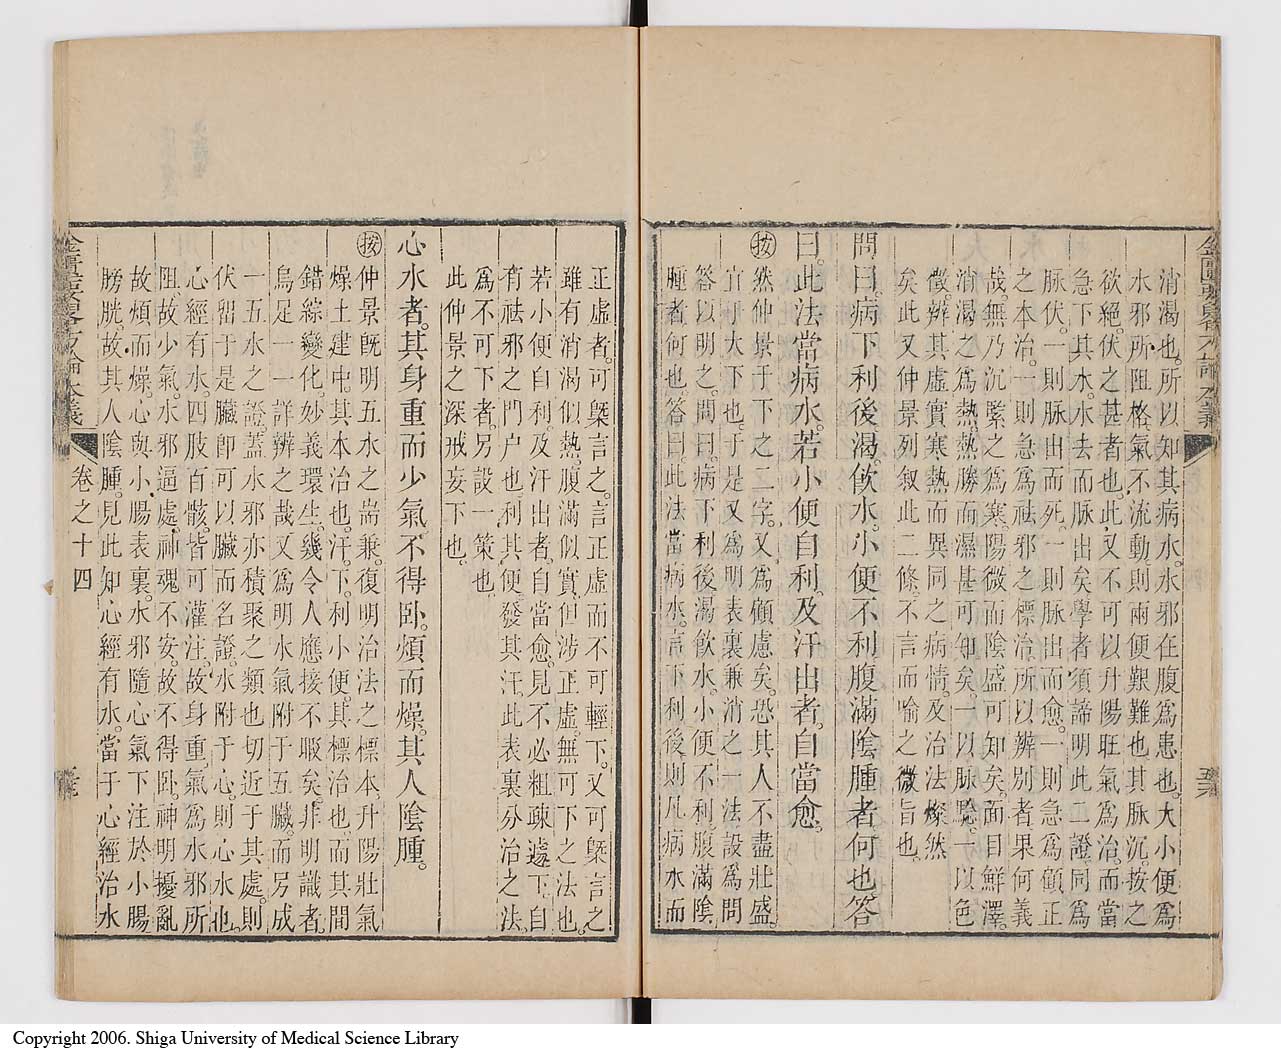 消渴也。所以知其病水。水邪在腹爲患也。大小便爲
水邪所阻格。氣不流動。則兩便艱難也。其脉沉。按之
欲絕。伏之甚者也。此又不可以升陽旺氣爲治。而當
急下其水。水去而脉出矣。學者須諦明此二證。同爲
脉伏。一則脉出而死。一則脉出而愈。一則急爲顧正
之本治。一則急爲祛邪之標治。所以辨別者果何義
哉。無乃沉緊之爲寒。陽微而陰盛可知矣。面目鮮澤。
消渴之爲熱。熱勝而濕甚可知矣。一以脉驗。一以色
徵。辨其虛實寒熱。而異同之病情。及治法燦然
矣。此又仲景列叙此二條。不言而喻之微旨也。
問曰。病下利後。渴飲水。小便不利。腹滿陰腫者。何也。答
曰。此法當病水。若小便自利。及汗出者。自當愈。
按 然仲景于下之二字。又爲顧慮矣。恐其人不盡壯盛。
宜用大下也。于是又爲明表裏兼消之一法。設爲問
答以明之。問曰。病下利後。渴飲水。小便不利。腹滿陰
腫者何也。答曰。此法當病水。言下利後則凡病水而
正虛者。可槩言之。言正虛而不可輕下。又可槩言之
雖有消渴似熱。腹滿似實。但涉正虛。無可下之法也。
若小便自利。及汗出者。自當愈。見不必粗疎遽下。自
有祛邪之門户也。利其便。發其汗。此表裏分治之法。
爲不可下者。另設一策也。
此仲景之深戒妄下也。
心水者。其身重而少氣。不得卧。煩而燥。其人陰腫。
按 仲景既明五水之耑兼。復明治法之標本。升陽壯氣
燥土建中。其本治也。汗。下。利小便。其標治也。而其間
錯綜變化。妙義環生。幾令人應接不暇矣。非明識者。
烏足一一詳辨之哉。又爲明水氣附于五臟。而另成
一五水之證。蓋水邪亦積聚之類也。切近于其處。則
伏留于是臟。即可以臟而名證。水附于心。則心水也。
心經有水。四肢百骸。皆可灌注。故身重。氣爲水邪所
阻。故少氣。水邪逼處。神魂不安。故不得卧。神明擾亂
故煩而燥。心與小腸表裏。水邪隨心氣下注於小腸
膀胱。故其人陰腫。見此知心經有水。當于心經治水
卷之十四
Copyright 2006. Shiga University of Medical Science Library